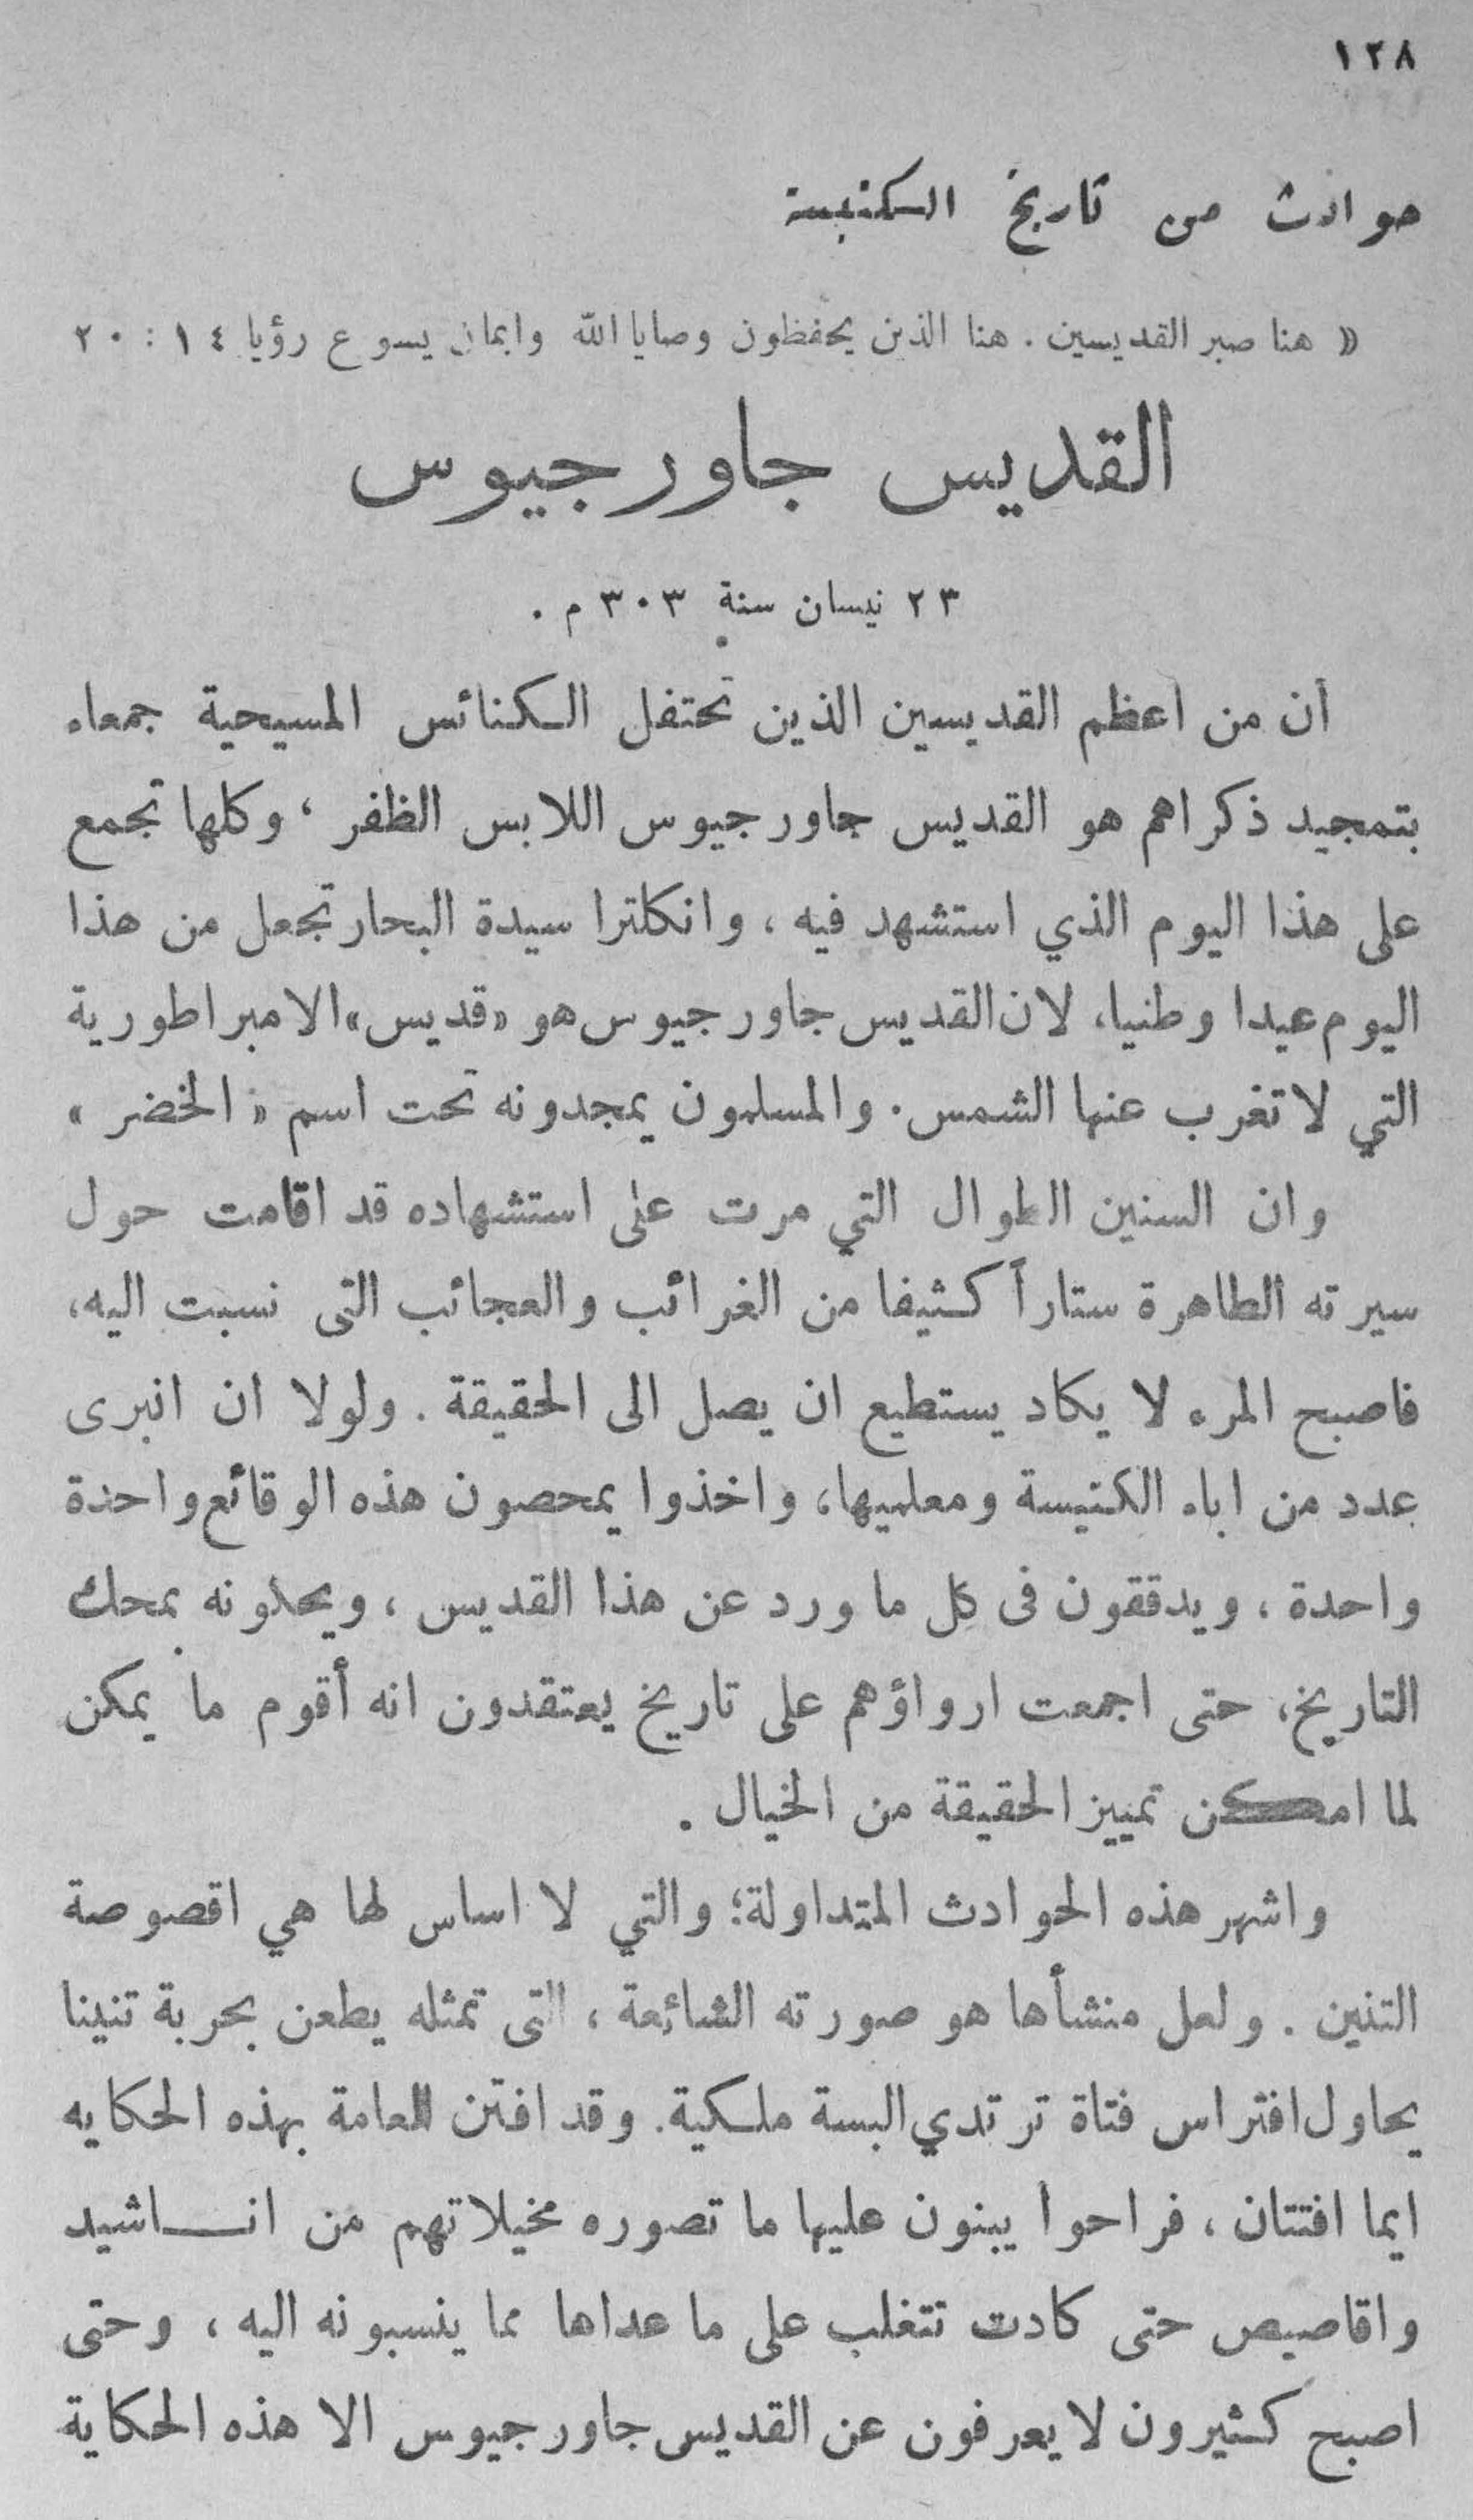 ١٢٨
حوادث من تاريخ الكنيسة
« هنا صبر القديسين . هنا الذين يحفظون وصايا الله وايمان يسوع رؤيا ١٤ : ٢٠
القديس جاورجيوس
٢٣ نيسان سنة ٣٠٣ م .
أن من اعظم القديسين الذين تحتفل الكنائس المسيحية جمعاء
بتمجيد ذكراهم هو القديس جاورجيوس اللابس الظفر ، وكلها تجمع
على هذا اليوم الذي استشهد فيه ، وانكلترا سيدة البحار تجعل من هذا
اليوم عيدا وطنيا، لان القديس جاورجيوس هو «قديس» الامبراطورية
التي لا تغرب عنها الشمس . والمسلمون يمجدونه تحت اسم « الخضر »
وان السنين الطوال التي مرت على استشهاده قد اقامت حول
سيرته الطاهرة ستاراً كثيفا من الغرائب والعجائب التى نسبت اليه،
فاصبح المرء لا يكاد يستطيع ان يصل الى الحقيقة . ولولا ان انبرى
عدد من اباء الكنيسة ومعلميها، واخذوا يمحصون هذه الوقائع واحدة
واحدة ، ويدققون فى كل ما ورد عن هذا القديس ، ويحكونه بمحك
التاريخ، حتى اجمعت ارواؤهم على تاريخ يعتقدون انه أقوم ما يمكن
لما امكن تمييز الحقيقة من الخيال .
واشهر هذه الحوادث المتداولة؛ والتي لا اساس لها هي اقصوصة
التنين . ولعل منشأها هو صورته الشائعة ، التى تمثله يطعن بحربة تنينا
يحاول افتراس فتاة ترتدي البسة ملكية. وقد افتتن العامة بهذه الحكايه
ايما افتتان ، فراحوا يبنون عليها ما تصوره مخيلاتهم من اناشيد
واقاصيص حتى كادت تتغلب على ما عداها مما ينسبونه اليه ، وحتى
اصبح كثيرون لا يعرفون عن القديس جاورجيوس الا هذه الحكاية